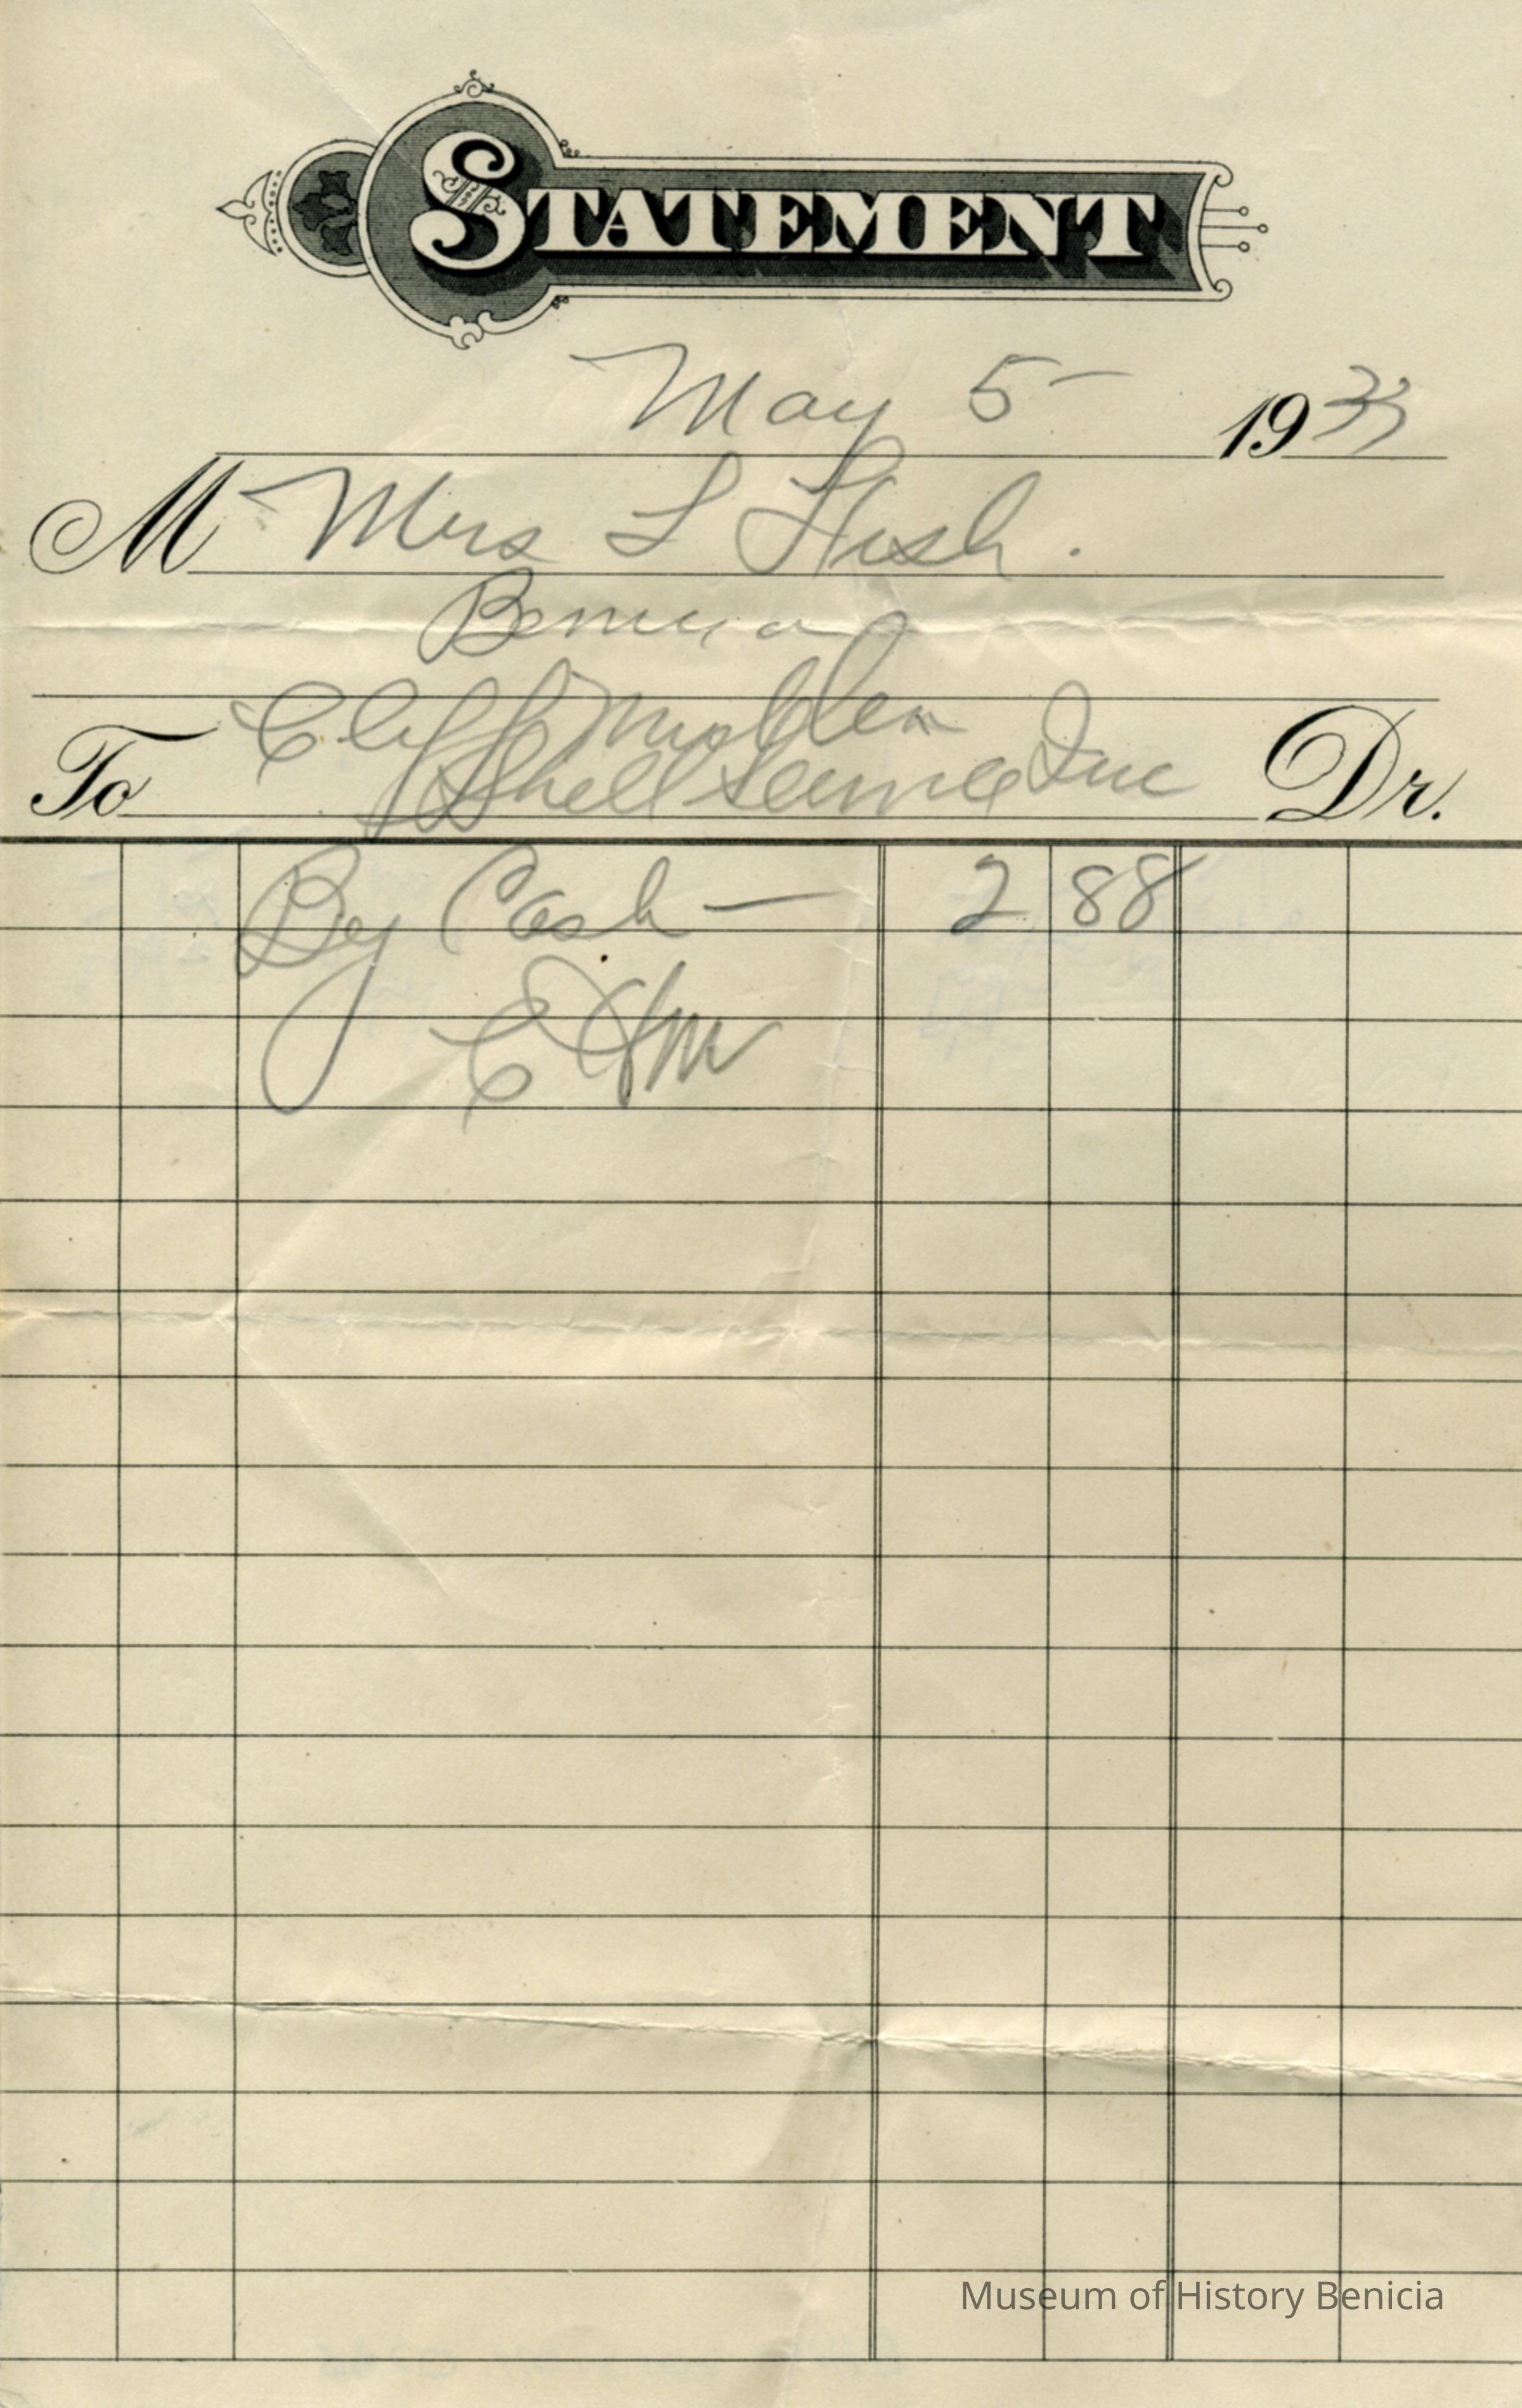 STATEMENT
May 5 - 1933
M Mrs L Fish.
Benicia
Cliff
To Shell Service Inc Dr.
By Cash — 2 88
Museum of History Benicia